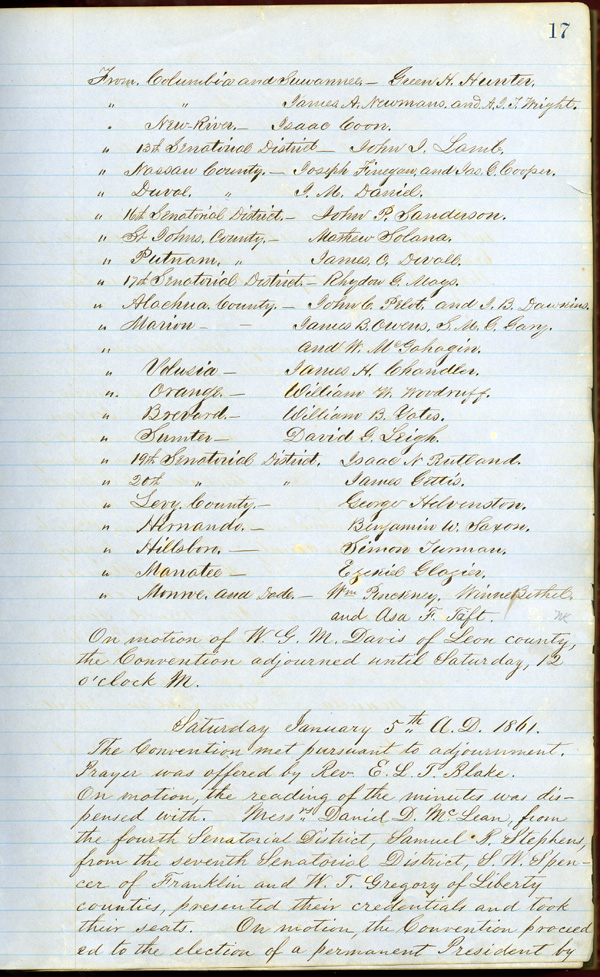 17
From Columbia and Suwannee — Green H. Hunter.
" " James A. Newmans, and A. J. T. Wright.
" New River. — Isaac Coon.
" 13th Senatorial District — John J. Lamb.
" Nassau County. — Joseph Finegan, and Jas. G. Cooper.
" Duval. " J. M. Daniel.
" 16th Senatorial District. — John P. Sanderson.
" St Johns. County. — Mathew Solana.
" Putnam, " James. O. Devall.
" 17th Senatorial District. — Rhydon G. Mays.
" Alachua. County. — John C. Pelot. and J. B. Dawkins.
" Marion — — James B. Owens, S. M. G. Gary.
" and W. McGahagin.
" Volusia — James H. Chandler.
". Orange. — William W. Woodruff.
" Brevard. — William B. Yates.
" Sumter — David G. Leigh.
" 19th Senatorial District. Isaac N Rutland.
" 20th " " James Gettis.
" Levy County. — George Helvenston.
" Hernando. — Benjamin W. Saxon.
" Hillsboro. — Simon Turman.
" Manatee — Ezekiel Glazier.
" Monroe, and Dade. — Wm Pinckney, Winer Bethel,
and Asa F. Tift.
On motion of W. G. M. Davis of Leon county,
the Convention adjourned until Saturday, 12
o'clock M.
Saturday January 5th A. D. 1861.
The Convention met pursuant to adjournment.
Prayer was offered by Rev. E. L. T. Blake.
On motion, the reading of the minutes was dis-
pensed with. Messrs Daniel D. McLean, from
the fourth Senatorial District, Samuel B. Stephens,
from the seventh Senatorial District, S. W. Spen-
cer of Franklin and W. T. Gregory of Liberty
counties, presented their credentials and took
their seats. On motion, the Convention proceed
ed to the election of a permanent President by